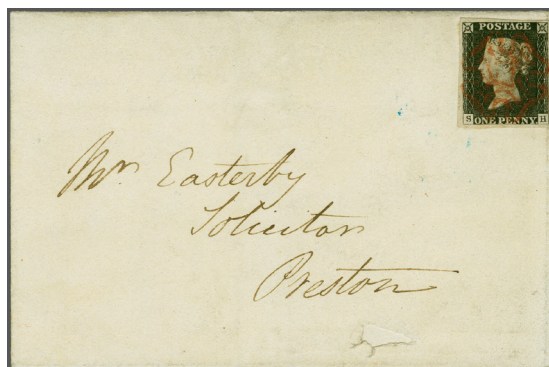 POSTAGE
S ONE PENNY H
Mr Easterby
Solicitor
Preston